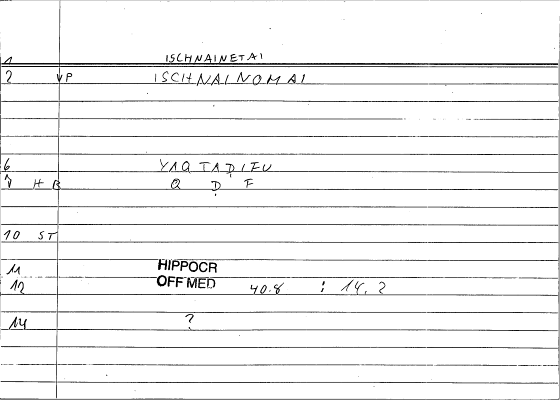 1 ISCHNAINETAI
2 VP ISCHNAINOMAI
6 YAQTADIFU
7 HB Q Ḍ F
10 ST
11 HIPPOCR
12 OFF MED 40.8 : 14.2
14 ?